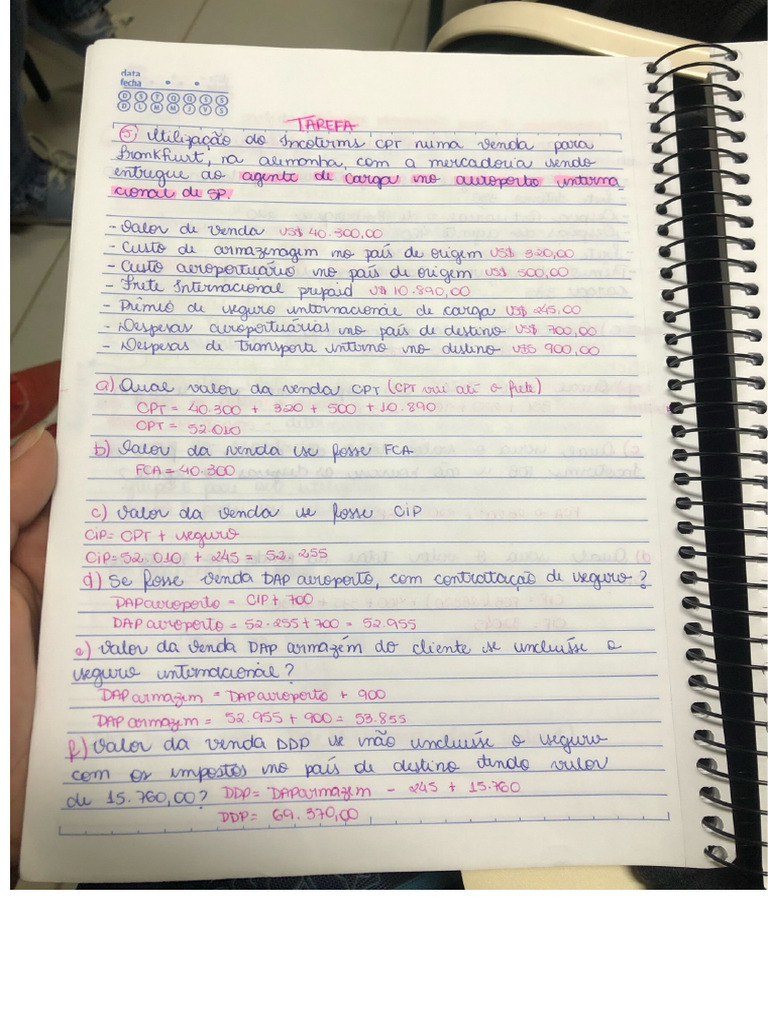 data
fecha
D S T Q Q S S
D L M M J V S
TAREFA
5) Utilização do Incoterms CPT numa venda para
Frankfurt, na alemanha, com a mercadoria sendo
entregue ao agente de carga no aeroporto interna
cional de SP.
- Valor de venda US$ 40.300,00
- Custo de armazenagem no país de origem US$ 320,00
- Custo aeroportuário no país de origem US$ 500,00
- Frete Internacional prepaid U$ 10.890,00
- Prêmio de seguro internacional de carga US$ 245,00
- Despesas aeroportuárias no país de destino US$ 700,00
- Despesas de Transporte interno no destino US$ 900,00
a) Qual valor da venda CPT (CPT vai até o frete)
CPT = 40.300 + 320 + 500 + 10.890
CPT = 52.010
b) Valor da venda se fosse FCA
FCA = 40.300
c) Valor da venda se fosse CIP
CIP= CPT + seguro
CIP= 52.010 + 245 = 52.255
d) Se fosse venda DAP aeroporto, com contratação de seguro?
DAP aeroporto = CIP + 700
DAP aeroporto = 52.255 + 700 = 52.955
e) Valor da venda DAP armazém do cliente se incluísse o
seguro internacional?
DAP armazem = DAP aeroporto + 900
DAP armazem = 52.955 + 900 = 53.855
f) Valor da venda DDP se não incluísse o seguro
com os impostos no país de destino tendo valor
de 15.760,00? DDP= DAP armazem - 245 + 15.760
DDP= 69.370,00